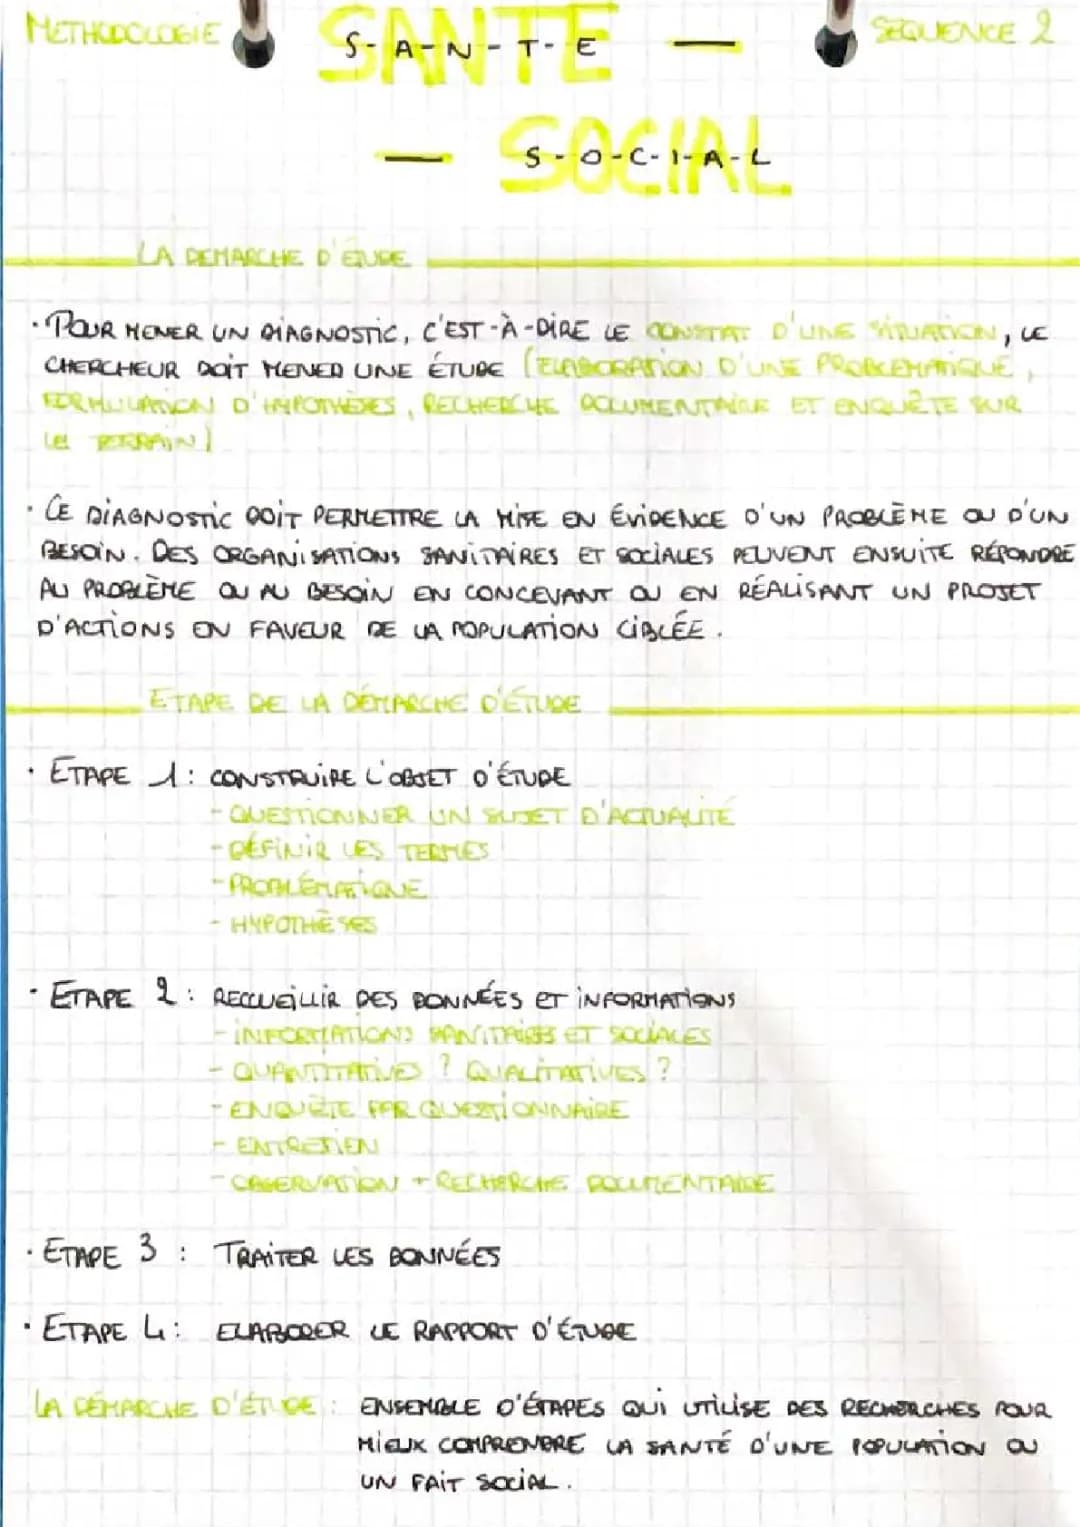 METHODOLOGIE
SÉQUENCE 2
SANTE
S-A-N-T-E —
SOCIAL
— S-O-C-I-A-L
LA DEMARCHE D'ÉTUDE
• POUR MENER UN DIAGNOSTIC, C'EST-À-DIRE LE CONSTAT D'UNE SITUATION, LE
CHERCHEUR DOIT MENER UNE ÉTUDE (ELABORATION D'UNE PROBLÉMATIQUE,
FORMULATION D'HYPOTHÈSES, RECHERCHE DOCUMENTAIRE ET ENQUÊTE SUR
LE TERRAIN)
• CE DIAGNOSTIC DOIT PERMETTRE LA MISE EN ÉVIDENCE D'UN PROBLÈME OU D'UN
BESOIN. DES ORGANISATIONS SANITAIRES ET SOCIALES PEUVENT ENSUITE RÉPONDRE
AU PROBLÈME OU AU BESOIN EN CONCEVANT OU EN RÉALISANT UN PROJET
D'ACTIONS EN FAVEUR DE LA POPULATION CIBLÉE.
ETAPE DE LA DÉMARCHE D'ÉTUDE
• ETAPE 1 : CONSTRUIRE L'OBJET D'ÉTUDE
- QUESTIONNER UN SUJET D'ACTUALITÉ
- DÉFINIR LES TERMES
- PROBLÉMATIQUE
- HYPOTHÈSES
• ETAPE 2 : RECUEILLIR DES DONNÉES ET INFORMATIONS
- INFORMATIONS SANITAIRES ET SOCIALES
- QUANTITATIVES ? QUALITATIVES ?
- ENQUÊTE PAR QUESTIONNAIRE
- ENTRETIEN
- OBSERVATION + RECHERCHE DOCUMENTAIRE
• ETAPE 3 : TRAITER LES DONNÉES
• ETAPE 4 : ELABORER LE RAPPORT D'ÉTUDE
LA DÉMARCHE D'ÉTUDE : ENSEMBLE D'ÉTAPES QUI UTILISE DES RECHERCHES POUR
MIEUX COMPRENDRE LA SANTÉ D'UNE POPULATION OU
UN FAIT SOCIAL.